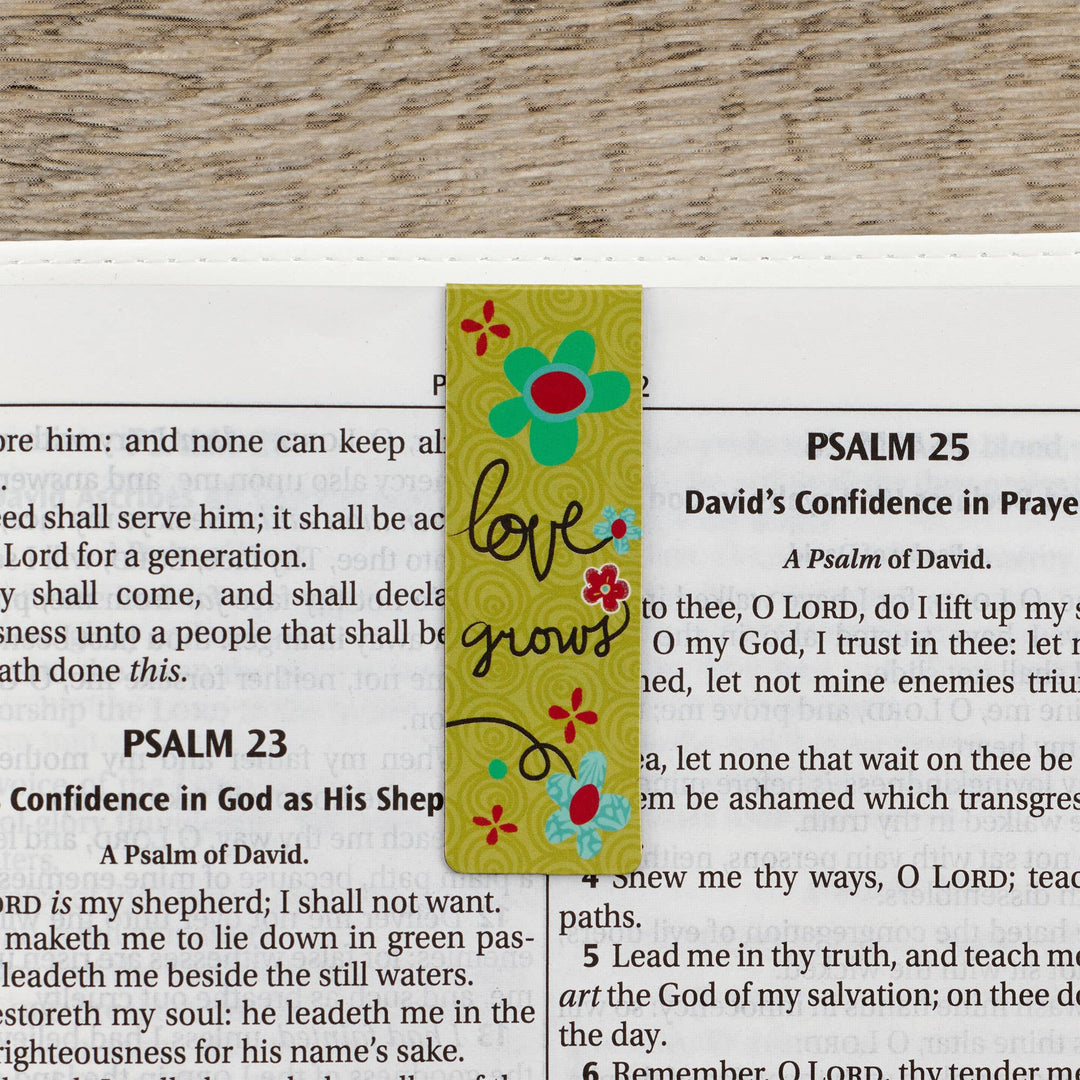 ore him: and none can keep
eed shall serve him; it shall be
Lord for a generation.
shall come, and shall
sness unto a people that shall be
ath done this.
PSALM 23
Confidence in God as His
A Psalm of David.
ORD is my shepherd; I shall not want.
maketh me to lie down in green pas-
leadeth me beside the still waters.
estoreth my soul: he leadeth me in the
righteousness for his name's sake.
love
grows
PSALM 25
David's Confidence in
A Psalm of David.
to thee, O LORD, do I lift up my
O my God, I trust in thee: let
let not mine enemies
let none that wait on thee be
be ashamed which
4 Shew me thy ways, O LORD;
paths.
5 Lead me in thy truth, and teach
art the God of my salvation; on thee
the day.
6 Remember, O LORD, thy tender